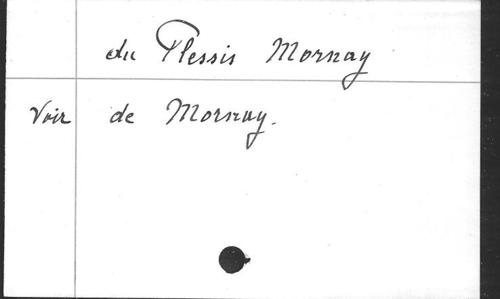 du Plessis Mornay
Voir de Mornay.